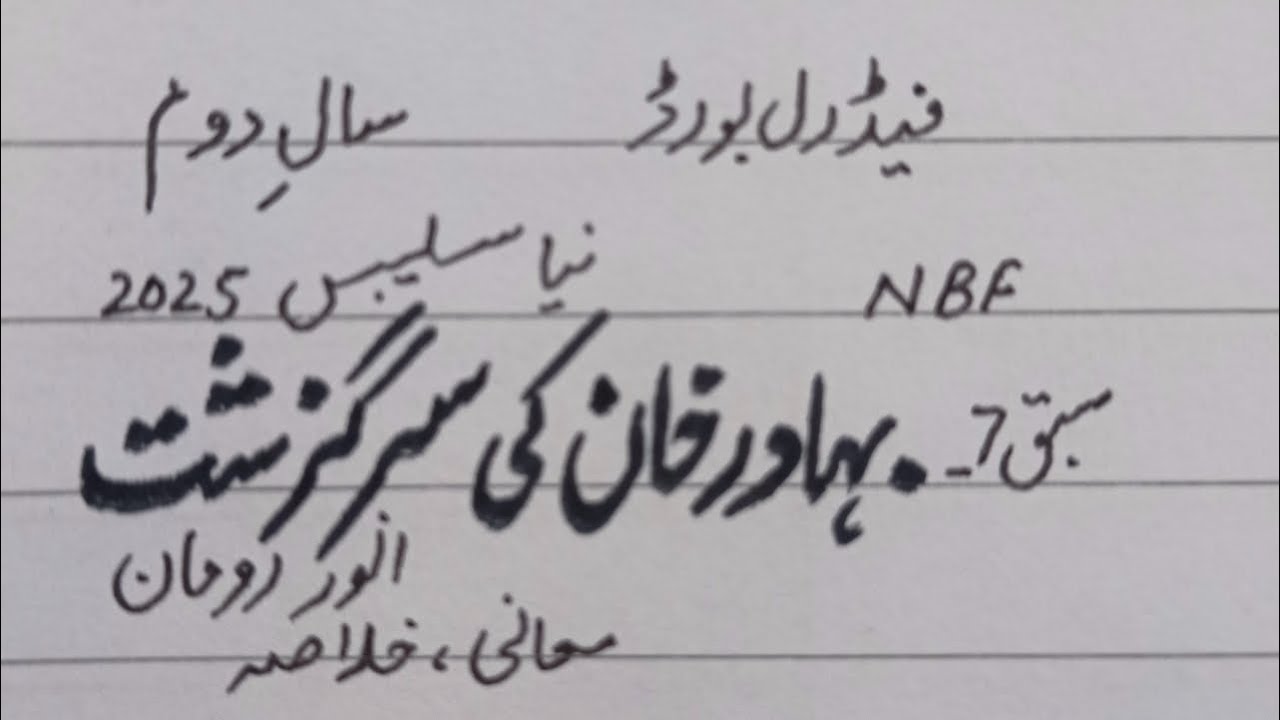 فیڈرل بورڈ سالِ دوم
NBF نیا سلیبس 2025
سبق 7۔ بہادر خان کی سرگزشت
انور رومان
معانی، خلاصہ